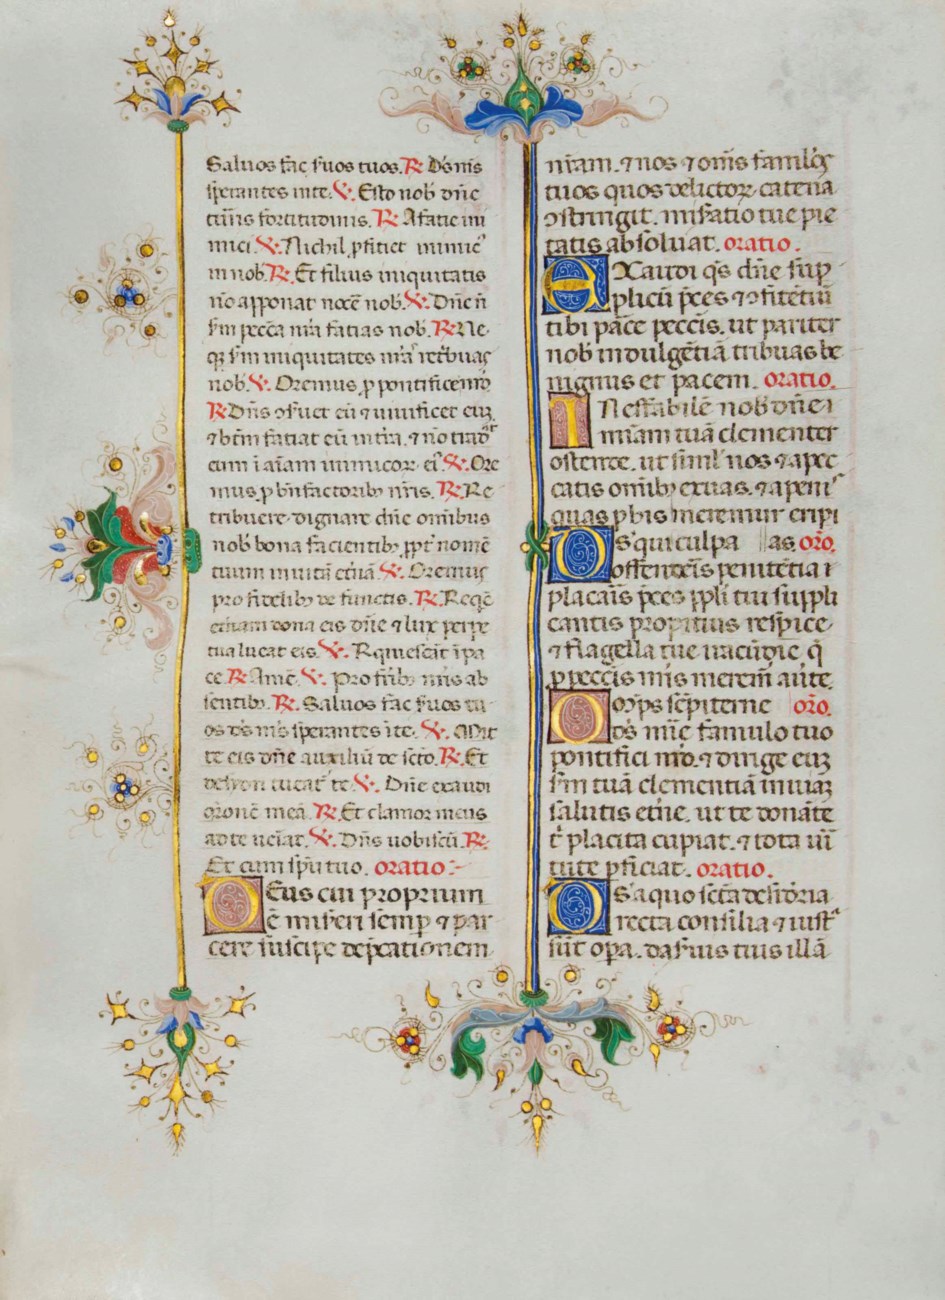 Saluos fac ſuos tuos. ℟ Ds̄ ms̄
ſperantes in te. ℣. Eſto nob̄ dn̄e
turris fortitudinis. ℟ A facie ini
mici ℣. Nichil ꝓficiet inimic᷒
in nob̄. ℟. Et filius iniquitatis
nō apponat nocē nob̄. ℣. Dn̄e ñ
ſm̄ pecca nr̄a facias nob̄. ℟ Ne
qꝫ ſm̄ iniquitates nr̄ā retbuas
nob̄ ℣. Oremus ꝓ pontifice nr̄o
℟ Dn̄s ꝯſuet eū ⁊ uiuificet eūꝫ
⁊ btm̄ faciat eū in tr̄a. ⁊ nō tradᵃᵗ
eum ī aīam inimicoꝝ ei᷒ ℣. Ore
mus ꝓ bn̄factorib᷒ nr̄is. ℟. Re
tribuere dignare dn̄e omībus
nob̄ bona facientib᷒ ꝓpt̄ nomē
tuum in uitā etn̄ā ℣. Oremus
pro fidelib᷒ defunctis. ℟. Reqē
eternam dona eis dn̄e ⁊ lux perpe
tua luceat eis. ℣. Rquieſcāt ī pa
ce. ℟ Amē. ℣. Pro frib᷒ nr̄is ab
ſentib᷒. ℟. Saluos fac ſuos tu
os ds̄ ms̄ ſperantes ī te. ℣. Mit
te eis dn̄e auxiliū de sc̄to. ℟. Et
de ſyon tueat᷑ te ℣. Dn̄e exaudi
or̄onē meā ℟. Et clamor meus
ad te ueīat. ℣. Dn̄s uobiſcū. ℟.
Et cum ſpū tuo. oratio
Deus cui proprium
ē miſeri ſemp̱ ⁊ par
cere ſuſcipe dep̄cationem
nr̄am. ⁊ nos ⁊ om̄s famlos
tuos quos delictoꝝ catena
ꝯſtringit. miſatio tue pie
tatis abſoluat. oratio.
Exaudi qs̄ dn̄e ſup
plicū p̄ces ⁊ ꝯfitētiū
tibi parce peccis. ut pariter
nob̄ indulgētiā tribuas be
nignus et pacem. oratio.
Ineffabilē nob̄ dn̄e
miam̄ tuā clementer
oſtende. ut ſiml᷑ nos ⁊ a pec
catis omīb᷒ exuas. ⁊ a penis
quas ꝓ his meremur eripi
Ds̄ qui culpa as. or̄o.
offenderis penitētia
placaris p̄ces ppl̄i tui ſuppli
cantis propitius reſpice
⁊ flagella tue iracūdie. q̄
ꝓ peccis nr̄is meremr̄ aūte.
Om̄ps ſēpiterne or̄o.
ds̄ miſe famulo tuo
pontifici nr̄o. ⁊ dirige eūꝫ
ſm̄ tuā clementiā in uiaꝫ
ſalutis etn̄e. ut te donāte
t̄ placita cupiat. ⁊ tota uir̄
tute ꝑficiat. oratio.
Ds̄ a quo sc̄ta deſideria
recta conſilia ⁊ iuſtᵃ
ſūt opa. da ſuis tuis illā